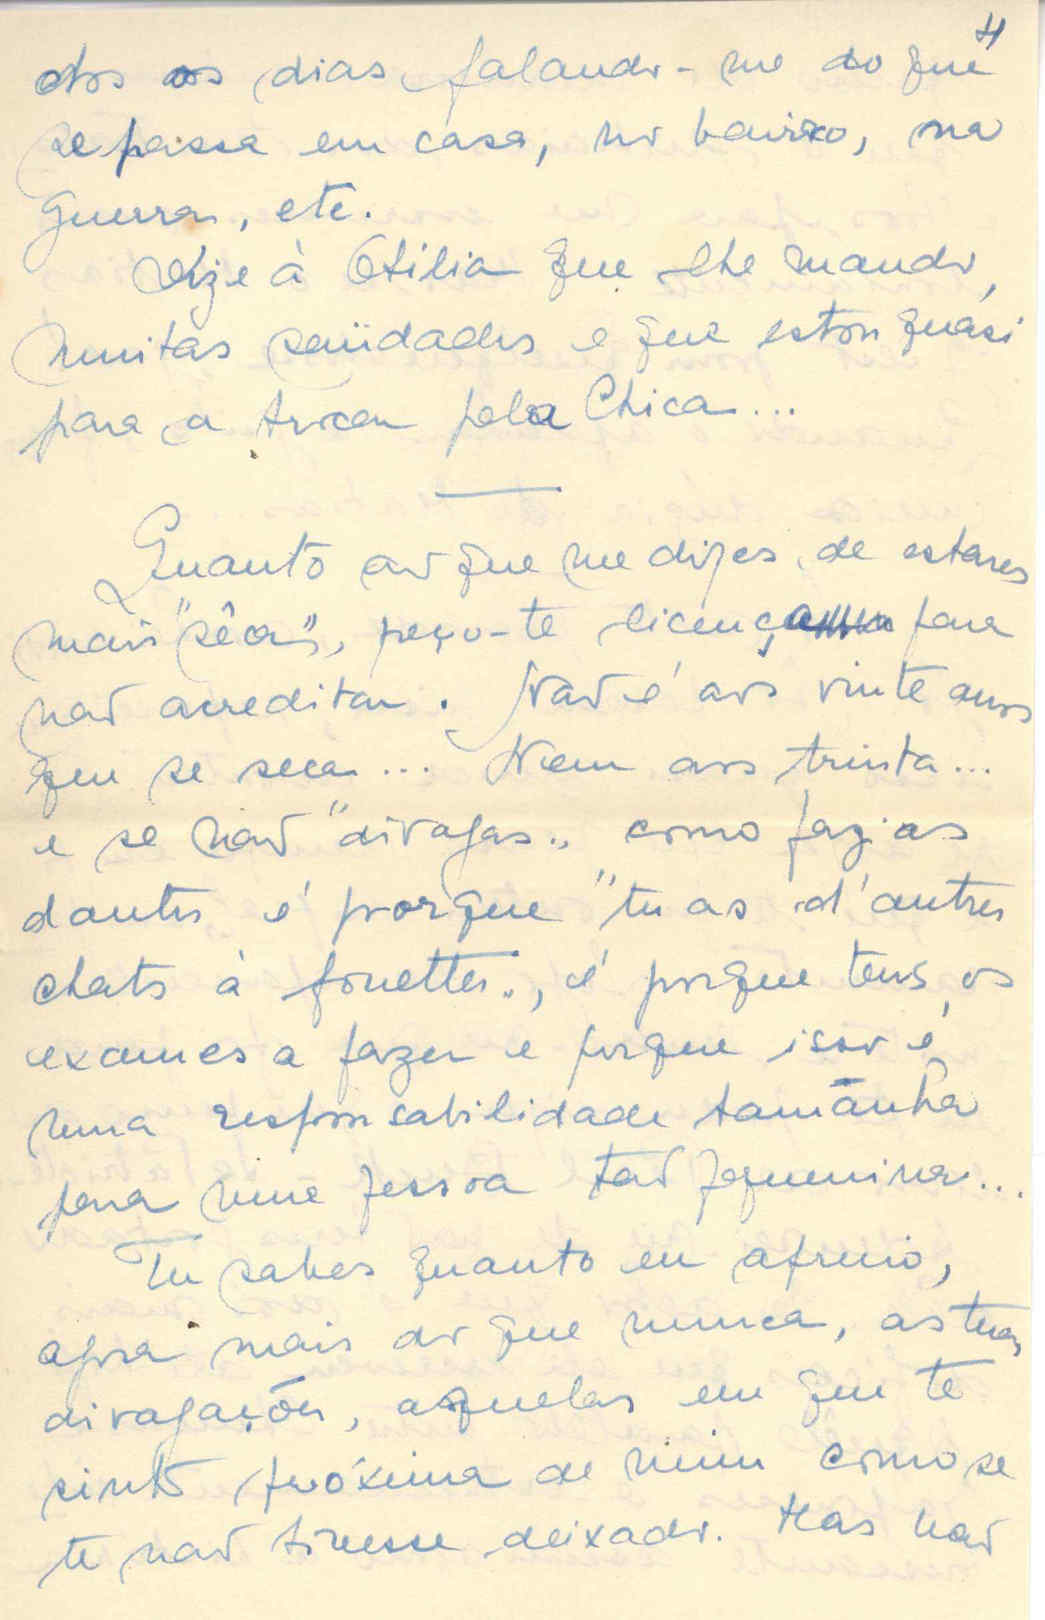 4
dos os dias, falando-me do que
se passa em casa, no bairro, na
guerra, etc.
Dize à Otilia que lhe mando
muitas saüdades e que estou quási
para a trocar pela Chica...
Quanto ao que me dizes, de estares
mais "sêca", peço-te licença para
não acreditar. Não é aos vinte anos
que se seca... Nem aos trinta...
e se não "divagas" como fazias
dantes é porque "tu as d'autres
chats à fouetter", é porque tens os
exames a fazer e porque isso é
uma responsabilidade tamānha
para uma pessoa tão pequenina...
Tu sabes quanto eu aprecio,
agora mais do que nunca, as tuas
divagações, aquelas em que te
sinto próxima de mim como se
te não tivesse deixado. Mas não